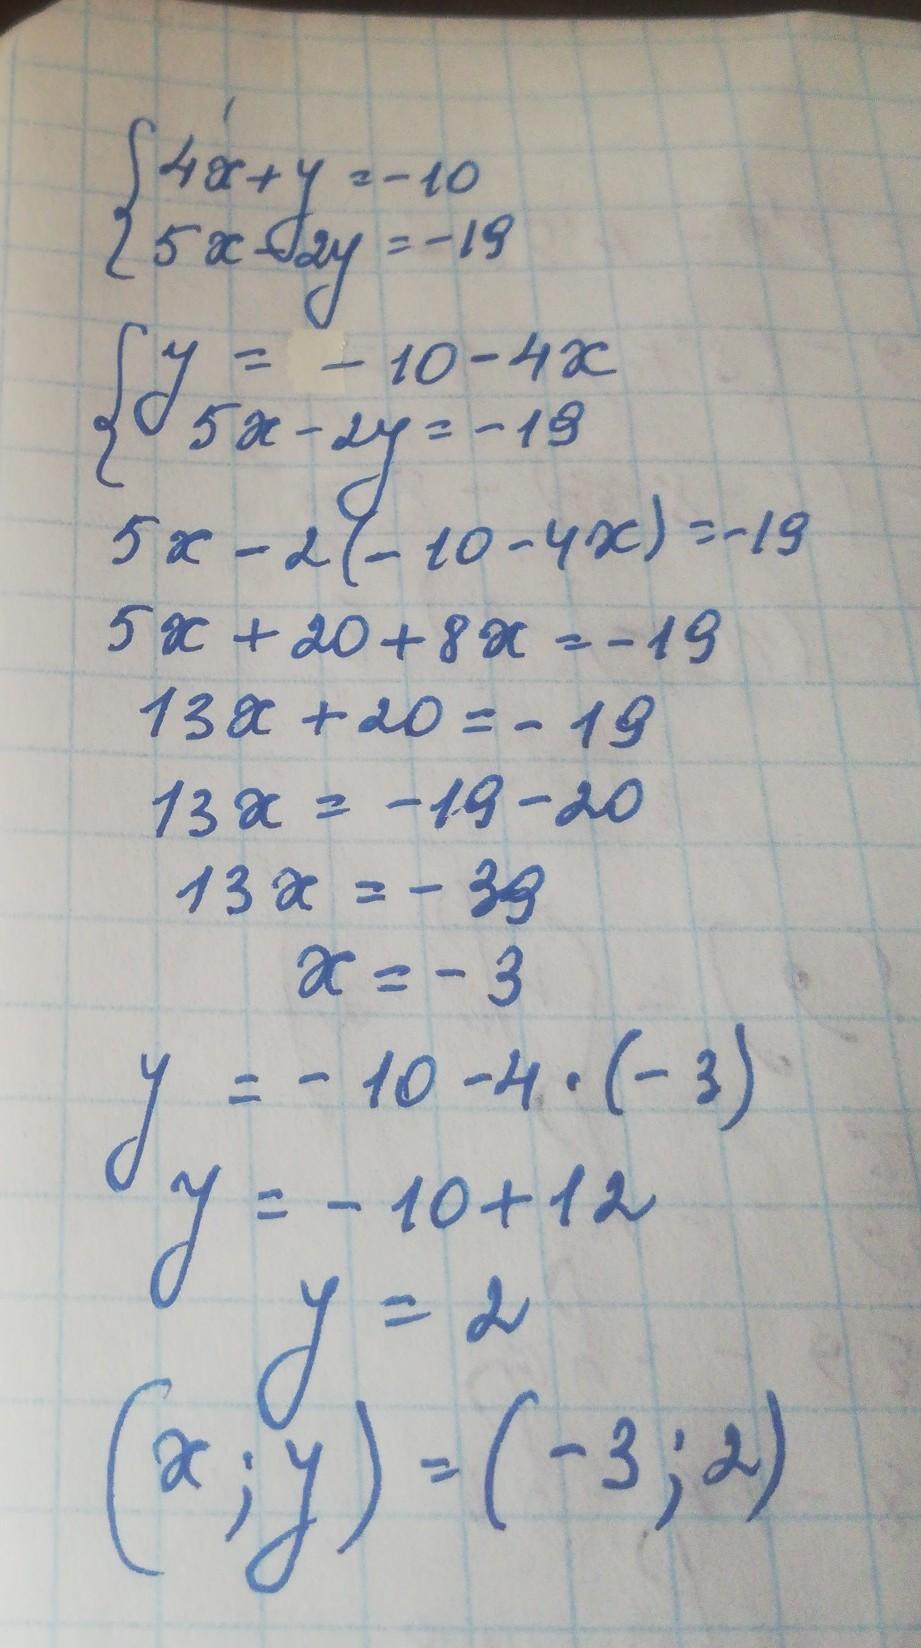 {4x+y=-10
5x-2y=-19
{y = -10-4x
5x-2y=-19
5x-2(-10-4x)=-19
5x+20+8x=-19
13x+20=-19
13x=-19-20
13x=-39
x=-3
y=-10-4·(-3)
y=-10+12
y=2
(x;y)=(-3;2)